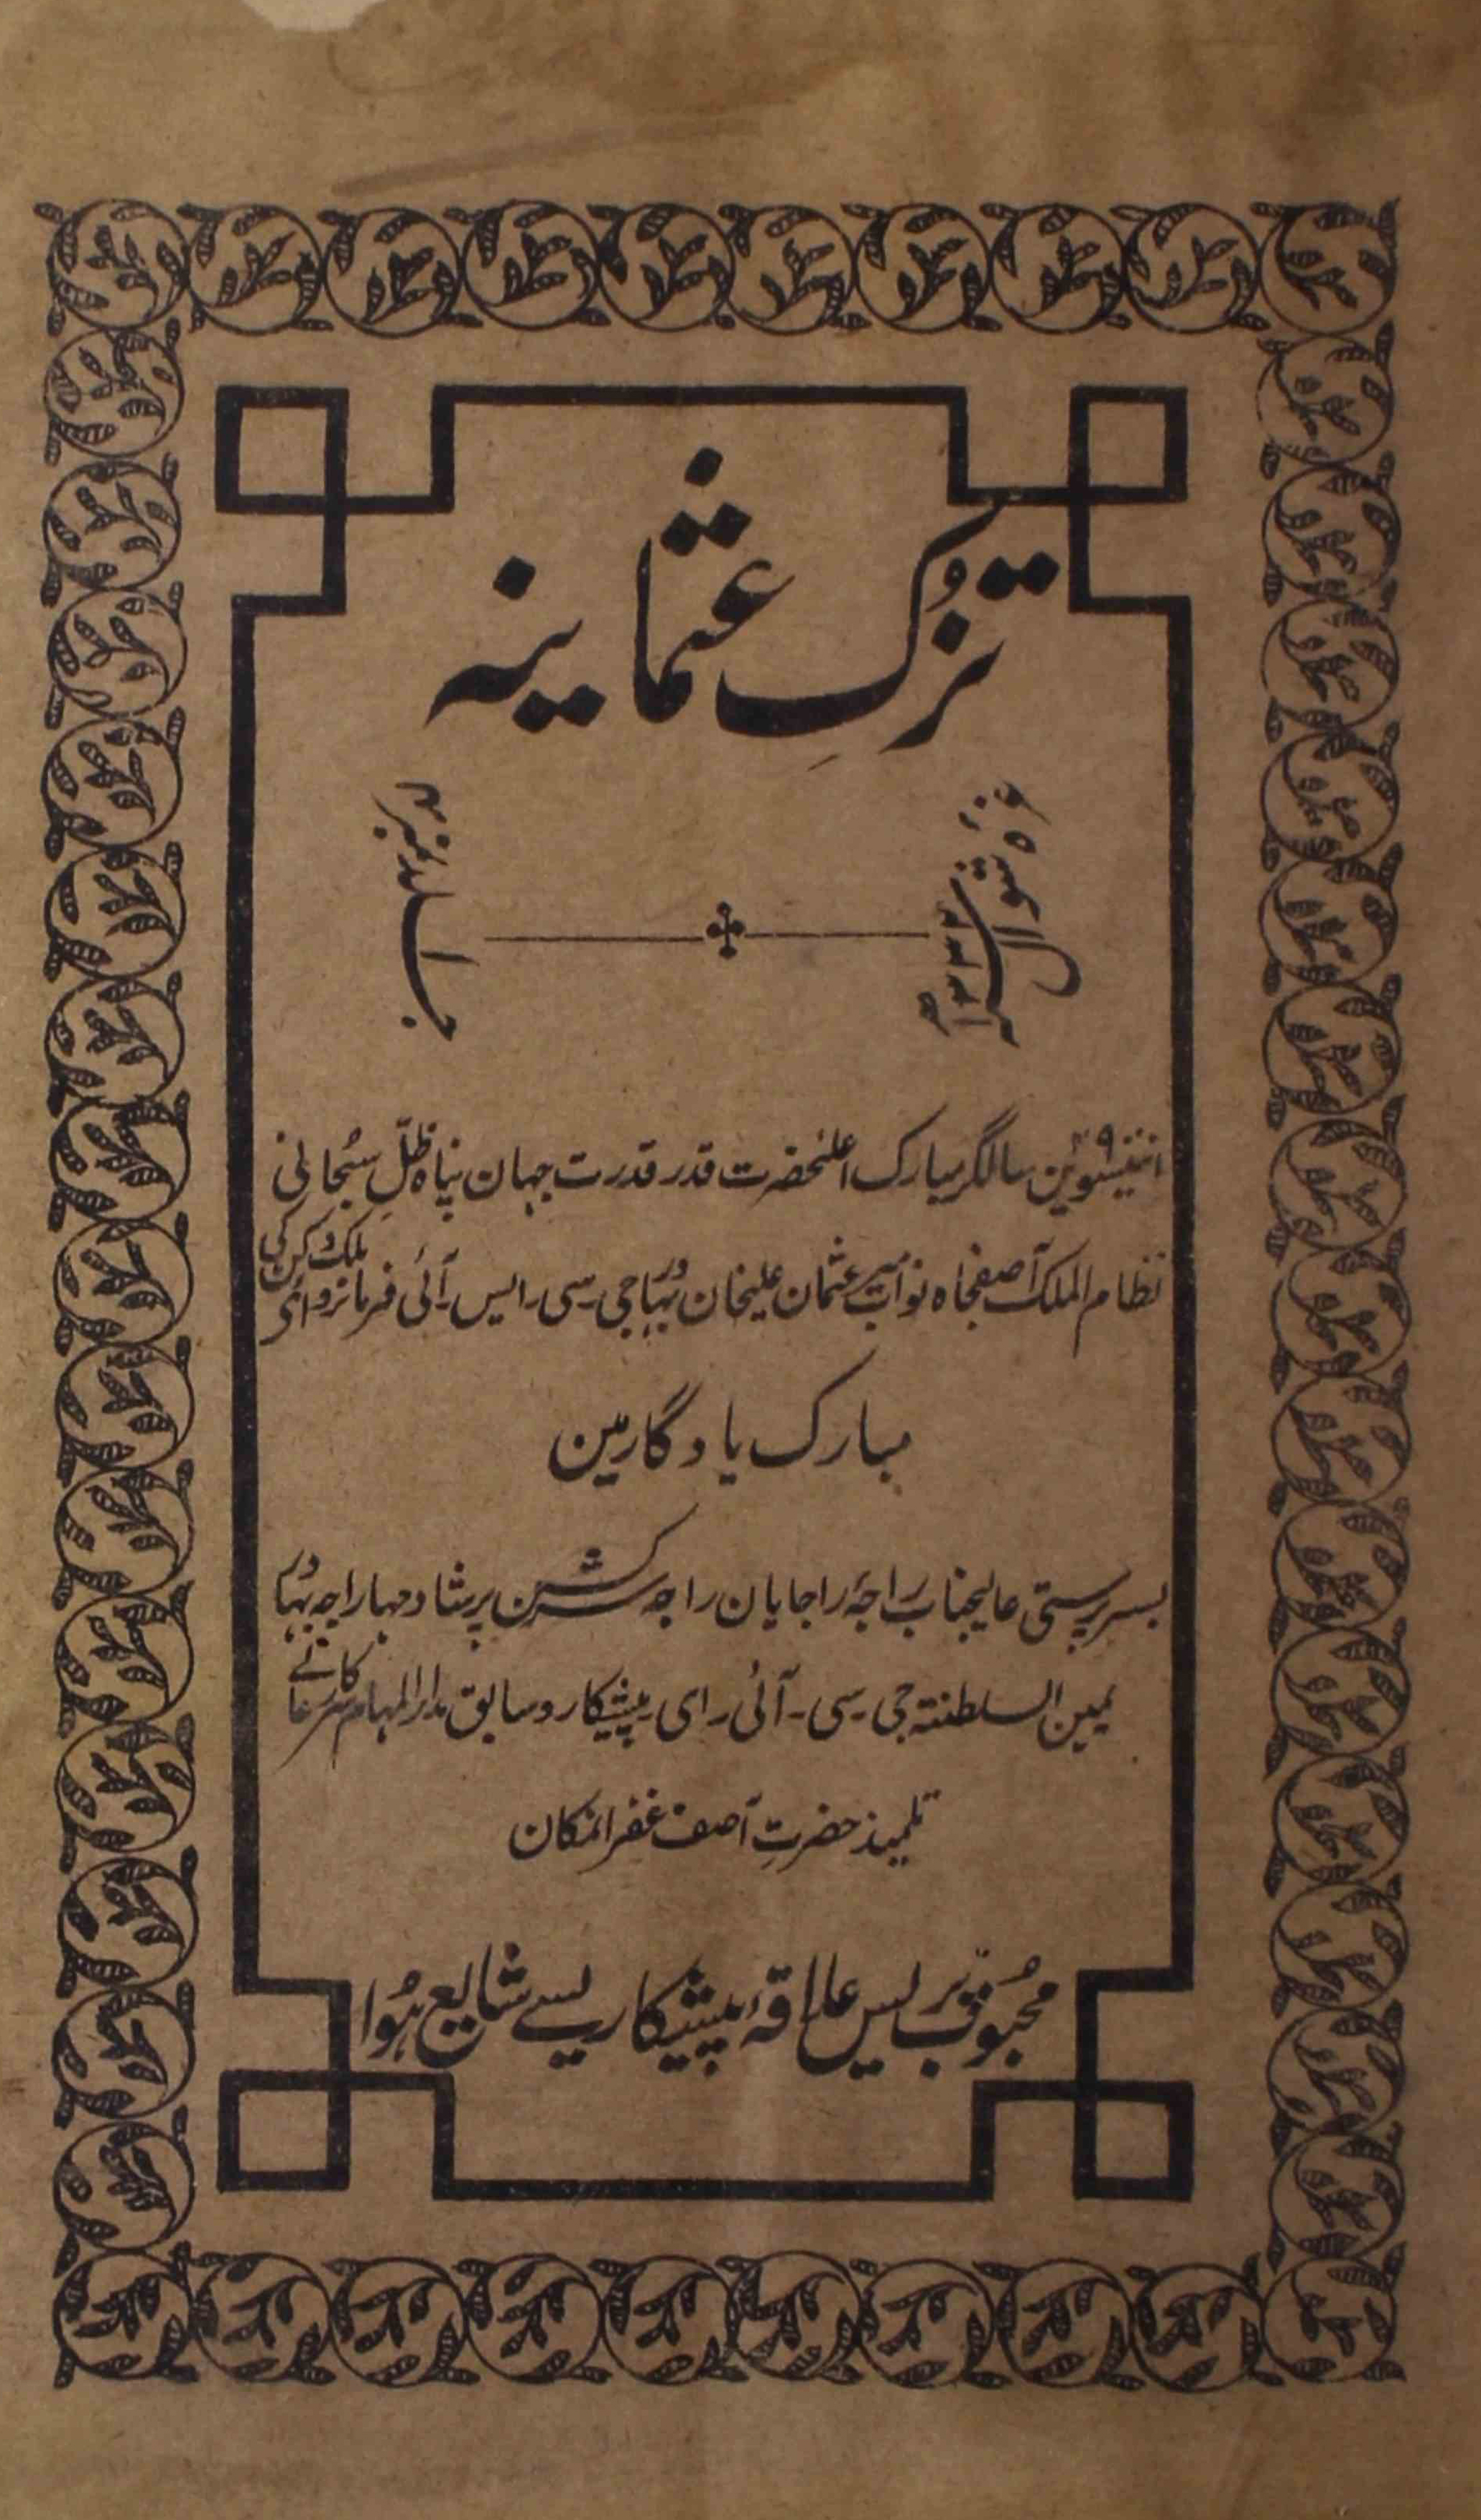 تزُکِ عثمانیہ
غرہ شوال سنہ ۱۳۳۲ھ
جلد نمبر
انتیسوین سالگرہ مبارک اعلیٰحضرت قدر قدرت جہان پناہ ظلِّ سُبحانی
نظام الملک آصفجاہ نواب میر عثمان علیخان بہادر جی۔سی۔ایس۔آئی فرمانروائ ملک دکن کی
مبارک یادگار مین
بسرپرستی عالیجناب راجۂ راجایان راجہ کشن پرشاد مہاراجہ بہادر
یمین السلطنتہ جی۔سی۔آئی۔ای۔پیشکار و سابق مدار المہام سرکار عالے
تلمیذ حضرتِ آصف غفرانمکان
محبُوب پریس علاقۂ پیشکاری سے شایع ہُوا